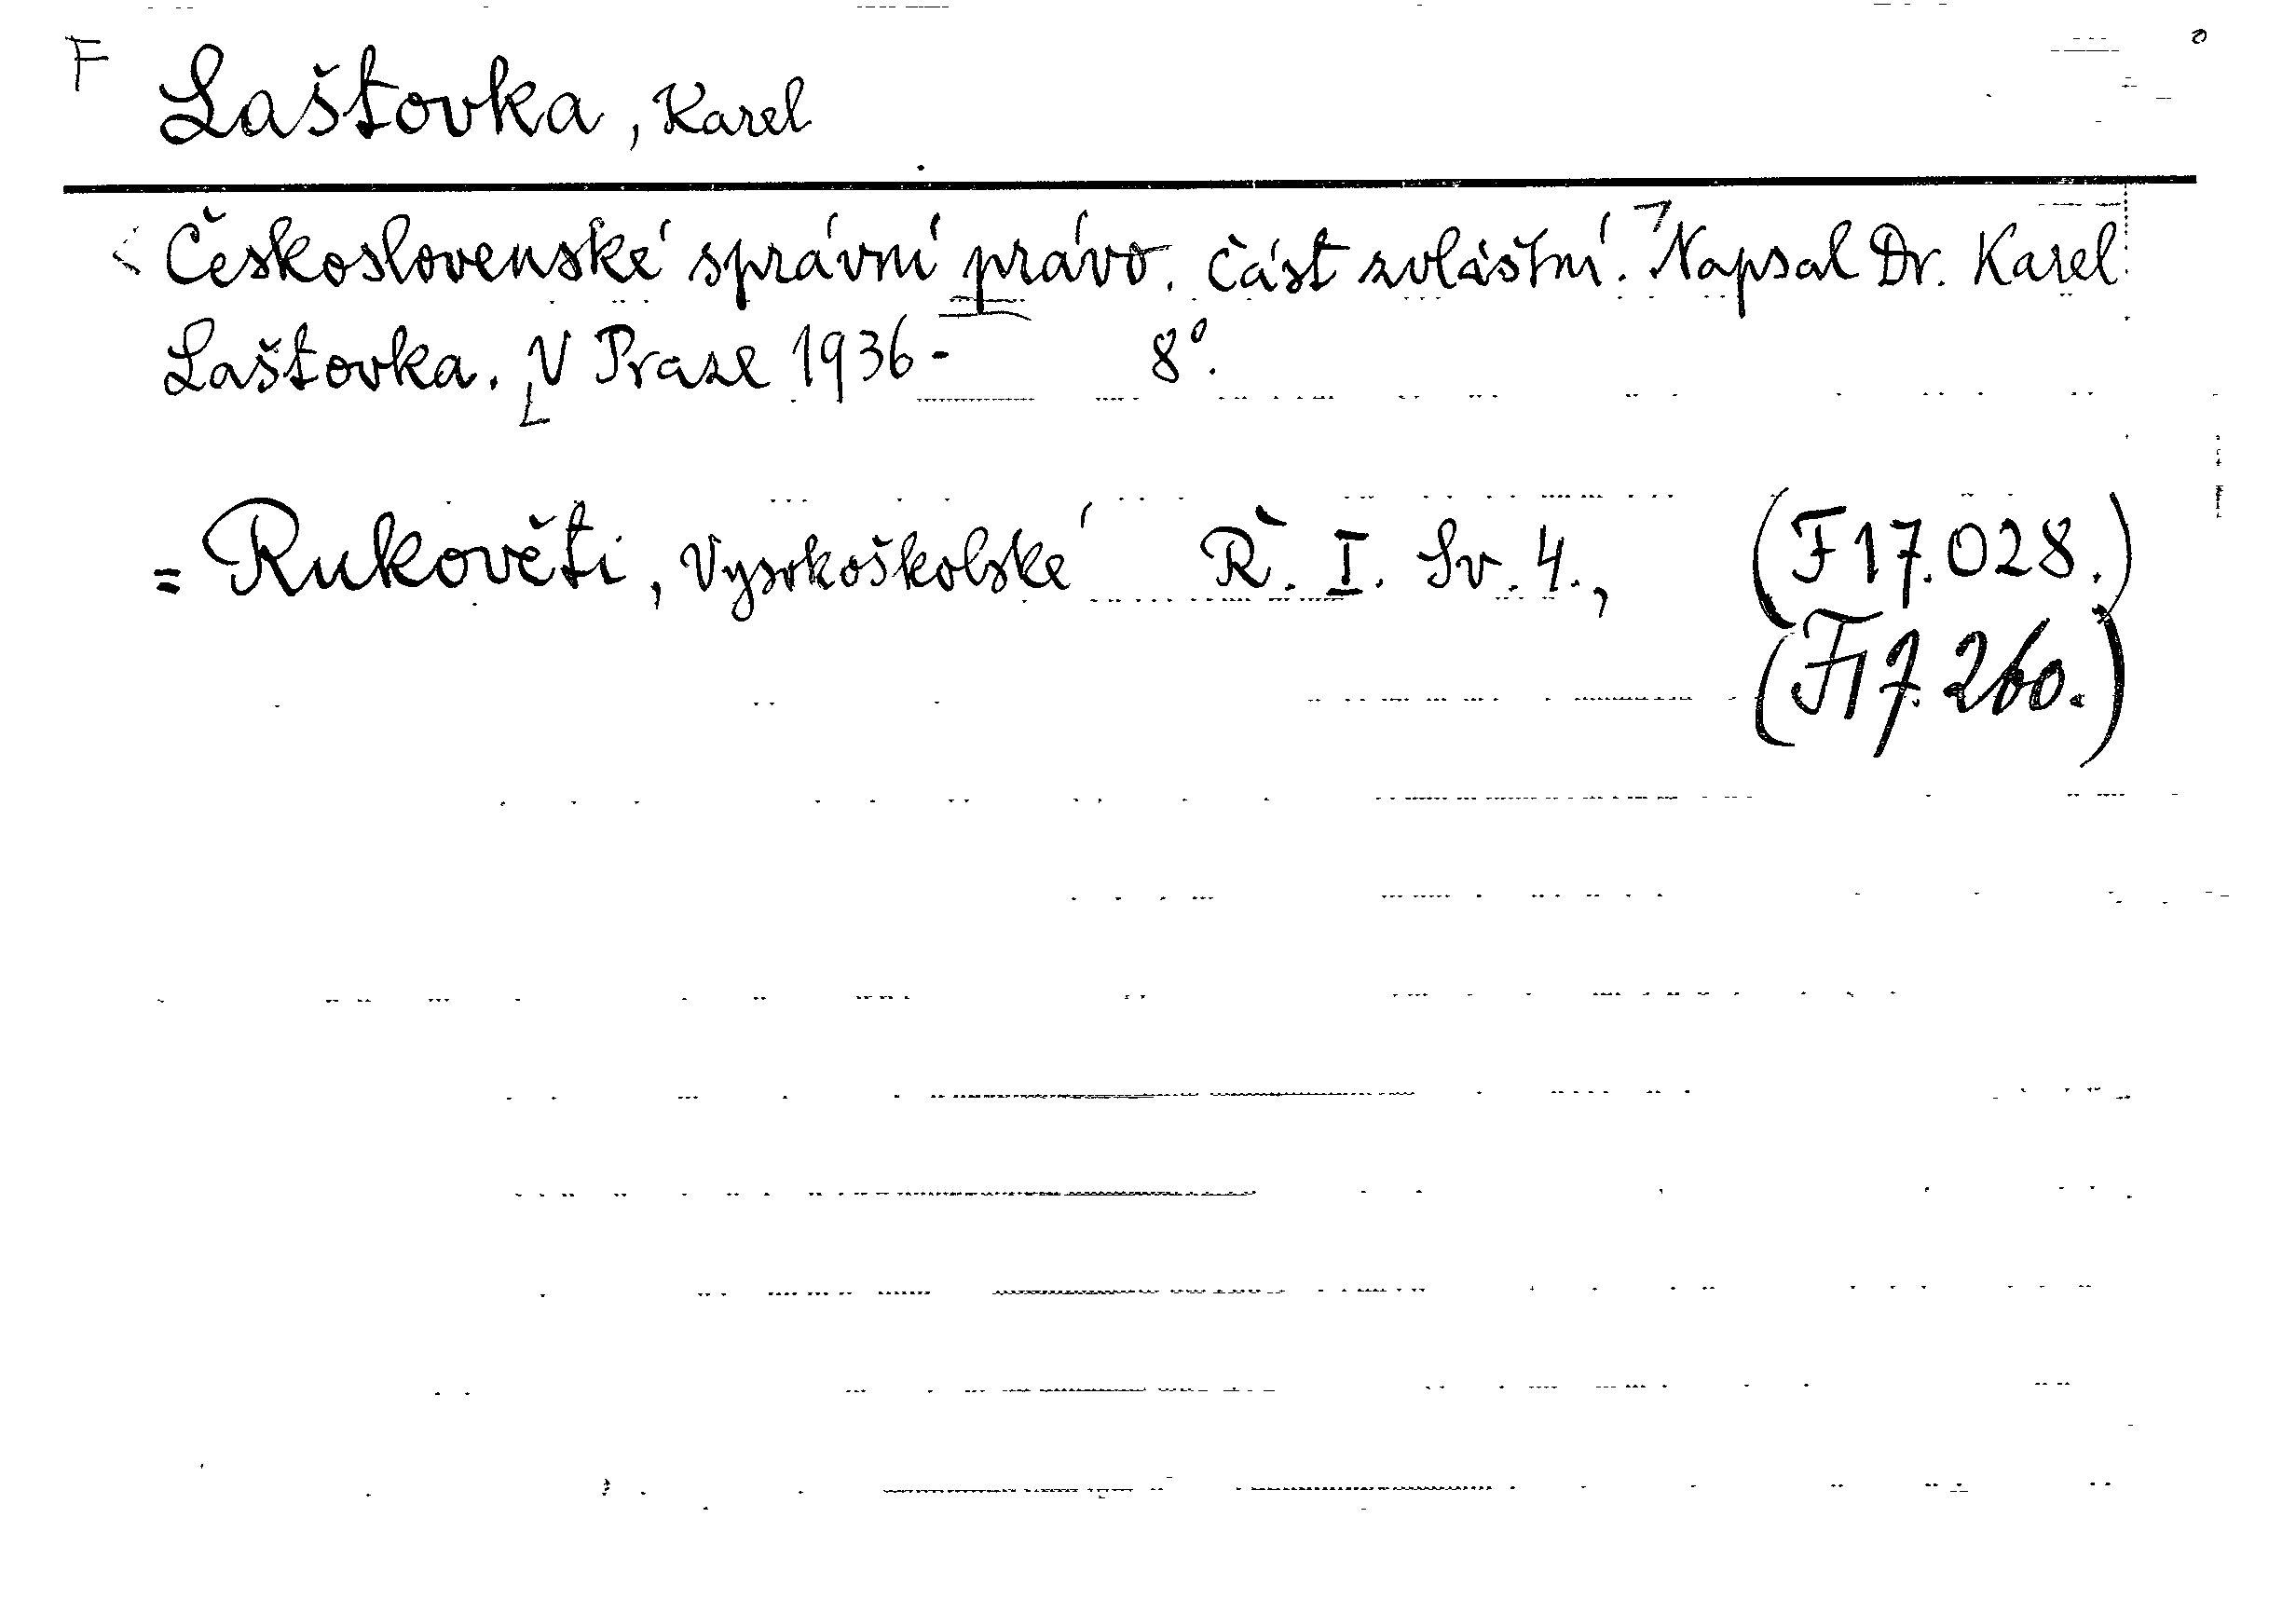 F Laštovka, Karel
Československé správní právo. Část zvláštní. Napsal Dr. Karel
Laštovka. V Praze 1936- 8°.
= Rukověti, Vysokoškolské Ř. I. Sv. 4., (F 17.028.)
(F 17.260.)